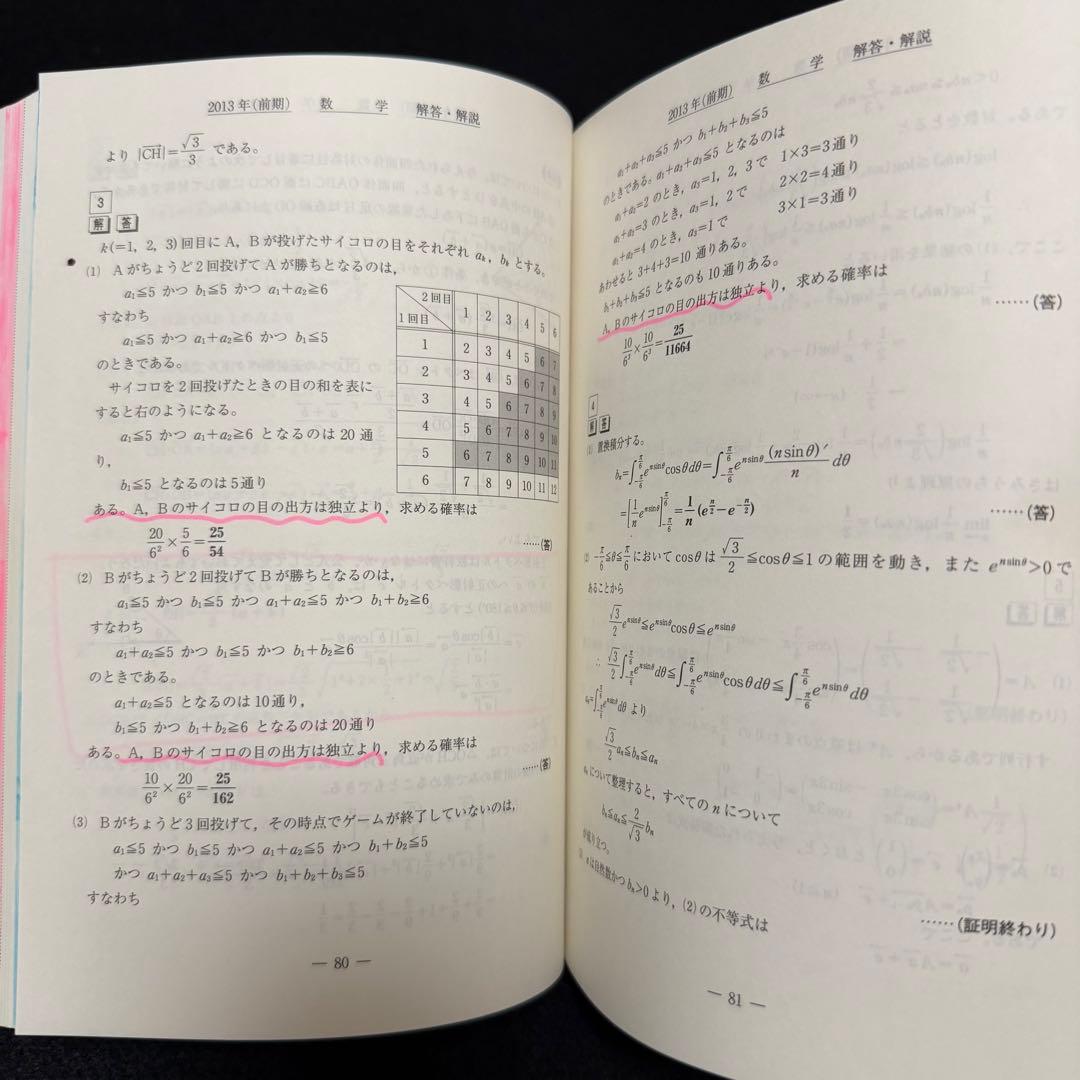 2013年(前期) 数 学 解答・解説
より |CH|=√3/3 である。
3
解 答
k(=1, 2, 3)回目にA, Bが投げたサイコロの目をそれぞれ aₖ, bₖ とする。
(1) Aがちょうど2回投げてAが勝ちとなるのは,
a₁≦5 かつ b₁≦5 かつ a₁+a₂≧6
すなわち
a₁≦5 かつ a₁+a₂≧6 かつ b₁≦5
のときである。
サイコロを2回投げたときの目の和を表に
すると右のようになる。
a₁≦5 かつ a₁+a₂≧6 となるのは 20 通
り,
b₁≦5 となるのは5通り
ある。A, Bのサイコロの目の出方は独立より, 求める確率は
20/6²×5/6=25/54 ……(答)
2回目
1回目 1 2 3 4 5 6
1 2 3 4 5 6 7
2 3 4 5 6 7 8
3 4 5 6 7 8 9
4 5 6 7 8 9 10
5 6 7 8 9 10 11
6 7 8 9 10 11 12
(2) Bがちょうど2回投げてBが勝ちとなるのは,
a₁≦5 かつ b₁≦5 かつ a₁+a₂≦5 かつ b₁+b₂≧6
すなわち
a₁+a₂≦5 かつ b₁≦5 かつ b₁+b₂≧6
のときである。
a₁+a₂≦5 となるのは10通り,
b₁≦5 かつ b₁+b₂≧6 となるのは20通り
ある。A, Bのサイコロの目の出方は独立より, 求める確率は
10/6²×20/6²=25/162 ……(答)
(3) Bがちょうど3回投げて, その時点でゲームが終了していないのは,
a₁≦5 かつ b₁≦5 かつ a₁+a₂≦5 かつ b₁+b₂≦5
かつ a₁+a₂+a₃≦5 かつ b₁+b₂+b₃≦5
すなわち
— 80 —
2013年(前期) 数 学 解答・解説
a₁+a₂+a₃≦5 かつ b₁+b₂+b₃≦5
のときである。a₁+a₂+a₃≦5 となるのは
a₁+a₂=2 のとき, a₃=1, 2, 3 で 1×3=3通り
a₁+a₂=3 のとき, a₃=1, 2 で 2×2=4通り
a₁+a₂=4 のとき, a₃=1で 3×1=3通り
あわせると 3+4+3=10 通りある。
b₁+b₂+b₃≦5 となるのも10通りある。
A, Bのサイコロの目の出方は独立より, 求める確率は
10/6³×10/6³=25/11664 ……(答)
4
解 答
(1) 置換積分する。
bₙ=∫_{-π/6}^{π/6} e^{n sinθ}cosθdθ=∫_{-π/6}^{π/6} e^{n sinθ} (n sinθ)′/n dθ
=[1/n e^{n sinθ}]_{-π/6}^{π/6}=1/n (e^{n/2}−e^{−n/2}) ……(答)
(2) −π/6≦θ≦π/6 において cosθ は √3/2≦cosθ≦1 の範囲を動き, また e^{n sinθ}>0 で
あることから
√3/2 e^{n sinθ}≦e^{n sinθ}cosθ≦e^{n sinθ}
∴ √3/2∫_{-π/6}^{π/6} e^{n sinθ}dθ≦∫_{-π/6}^{π/6} e^{n sinθ}cosθdθ≦∫_{-π/6}^{π/6} e^{n sinθ}dθ
aₙ=∫_{-π/6}^{π/6} e^{n sinθ}dθ より
√3/2 aₙ≦bₙ≦aₙ
aₙについて整理すると, すべてのnについて
bₙ≦aₙ≦2/√3 bₙ
が成り立つ。 ……(証明終わり)
nは自然数かつbₙ>0より, (2)の不等式は
— 81 —